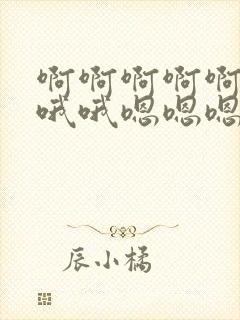 啊啊啊啊啊
哦哦嗯嗯嗯
辰小橘